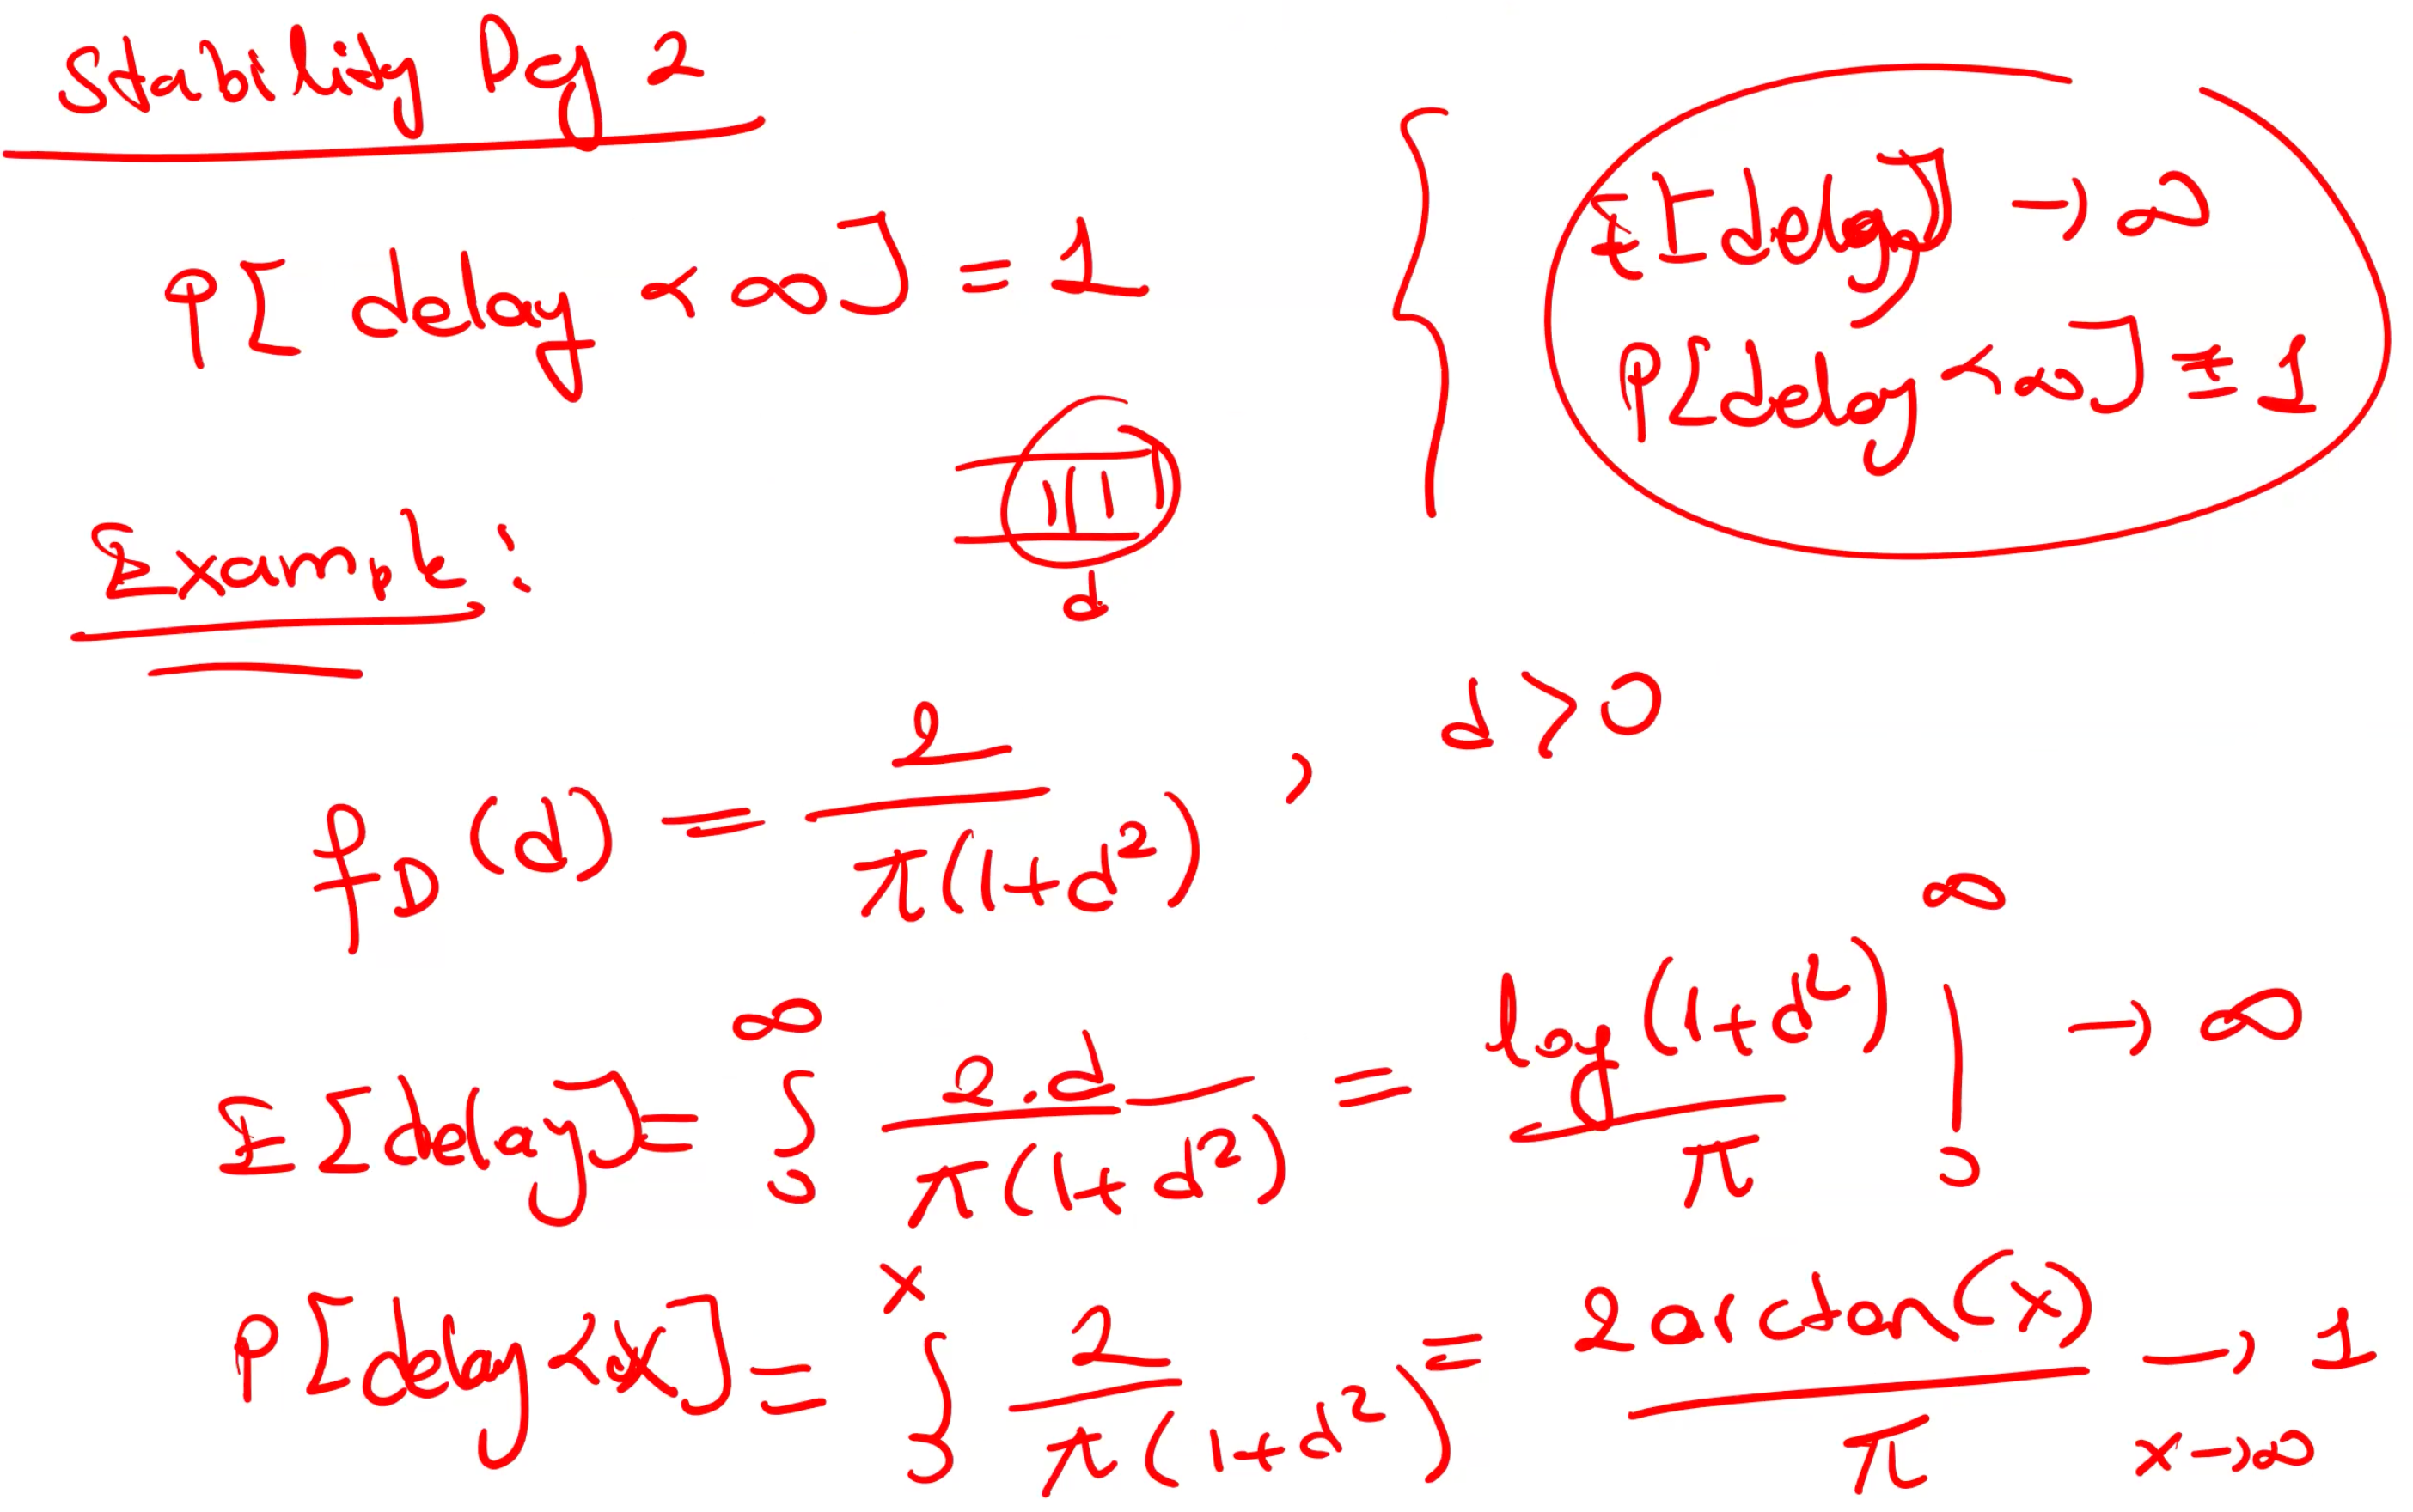 Stability Def 2
P[delay < ∞] = 1
E[delay] → ∞
P[delay < ∞] = 1
Example:
d
f_D(d) = 2 / π(1+d²) , d > 0
E[delay] = ∫₀^∞ 2·d / π(1+d²) = log(1+d²) / π |₀^∞ → ∞
P[delay < x] = ∫₀^x 2 / π(1+d²) = 2 arctan(x) / π → 1
x→∞